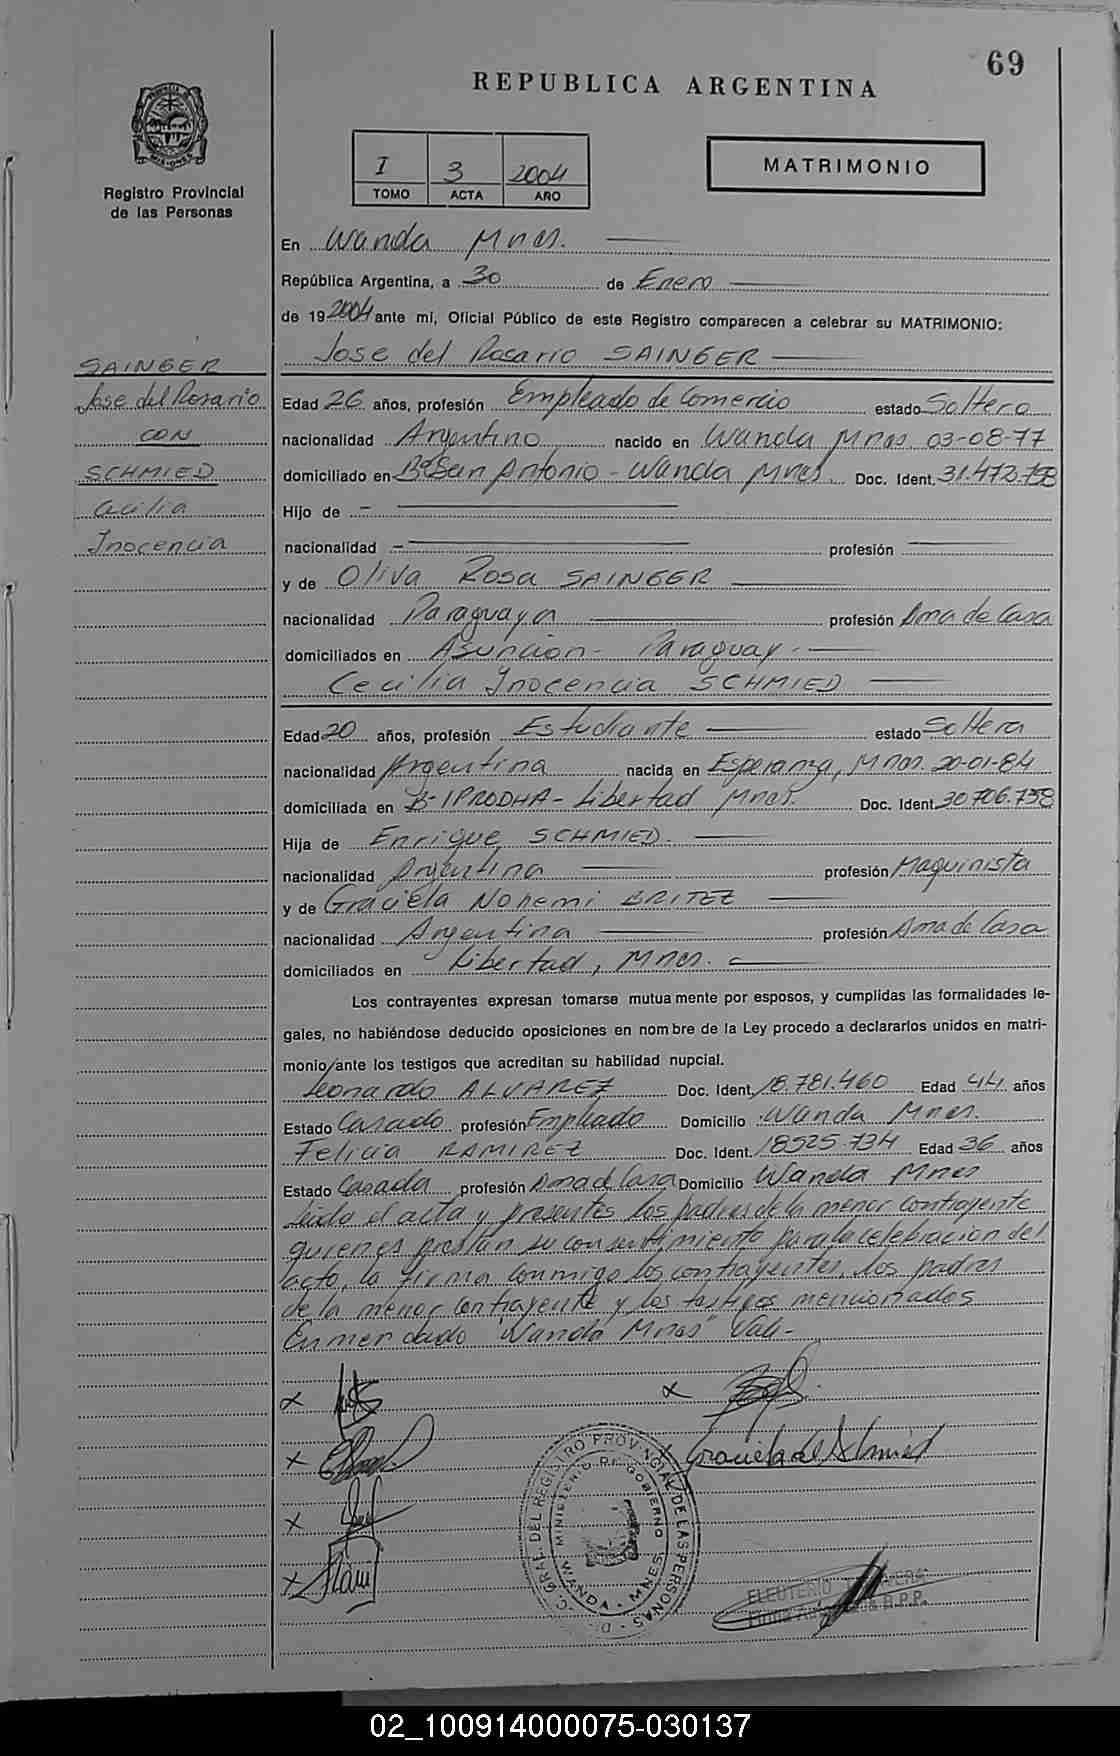 69
REPUBLICA ARGENTINA
PROVINCIA DE MISIONES
Registro Provincial
de las Personas
I 3 2004
TOMO ACTA AÑO
MATRIMONIO
En Wanda Mnes.
República Argentina, a 30 de Enero
de 19 2004 ante mí, Oficial Público de este Registro comparecen a celebrar su MATRIMONIO:
Jose del Rosario SAINGER
SAINGER
Jose del Rosario
CON
SCHMIED
Cecilia
Inocencia
Edad 26 años, profesión Empleado de Comercio estado Soltero
nacionalidad Argentino nacido en Wanda Mnes 03-08-77
domiciliado en Bº San Antonio - Wanda Mnes. Doc. Ident. 31.473.758
Hijo de -
nacionalidad - profesión
y de Oliva Rosa SAINGER
nacionalidad Paraguaya profesión Ama de Casa
domiciliados en Asunción - Paraguay -
Cecilia Inocencia SCHMIED
Edad 20 años, profesión Estudiante estado Soltera
nacionalidad Argentina nacida en Esperanza, Mnes. 20-01-84
domiciliada en Bº IPRODHA - Libertad Mnes. Doc. Ident. 30706.758
Hija de Enrique SCHMIED.
nacionalidad Argentina profesión Maquinista
y de Graciela Nohemi BRITEZ
nacionalidad Argentina profesión Ama de Casa
domiciliados en Libertad, Mnes.
Los contrayentes expresan tomarse mutuamente por esposos, y cumplidas las formalidades le-
gales, no habiéndose deducido oposiciones en nombre de la Ley procedo a declararlos unidos en matri-
monio/ante los testigos que acreditan su habilidad nupcial.
Leonardo ALVAREZ Doc. Ident. 18.781.460 Edad 44 años
Estado Casado profesión Empleado Domicilio Wanda Mnes.
Felicia RAMIREZ Doc. Ident. 18525.734 Edad 36 años
Estado Casada profesión Ama de Casa Domicilio Wanda Mnes
Leida el acta y presentes los padres de la menor contrayente
quienes prestan su consentimiento para la celebracion del
acto, la firman conmigo los contrayentes, los padres
de la menor contrayente y los testigos mencionados
Enmendado "Wanda Mnes" Vale-
x x
x x Graciela de Schmied
x
x
D. GRAL. DEL REGISTRO PROVINCIAL DE LAS PERSONAS
MINISTERIO DE GOBIERNO
WANDA - MNES.
ELEUTERIO
B.P.P.
02_100914000075-030137